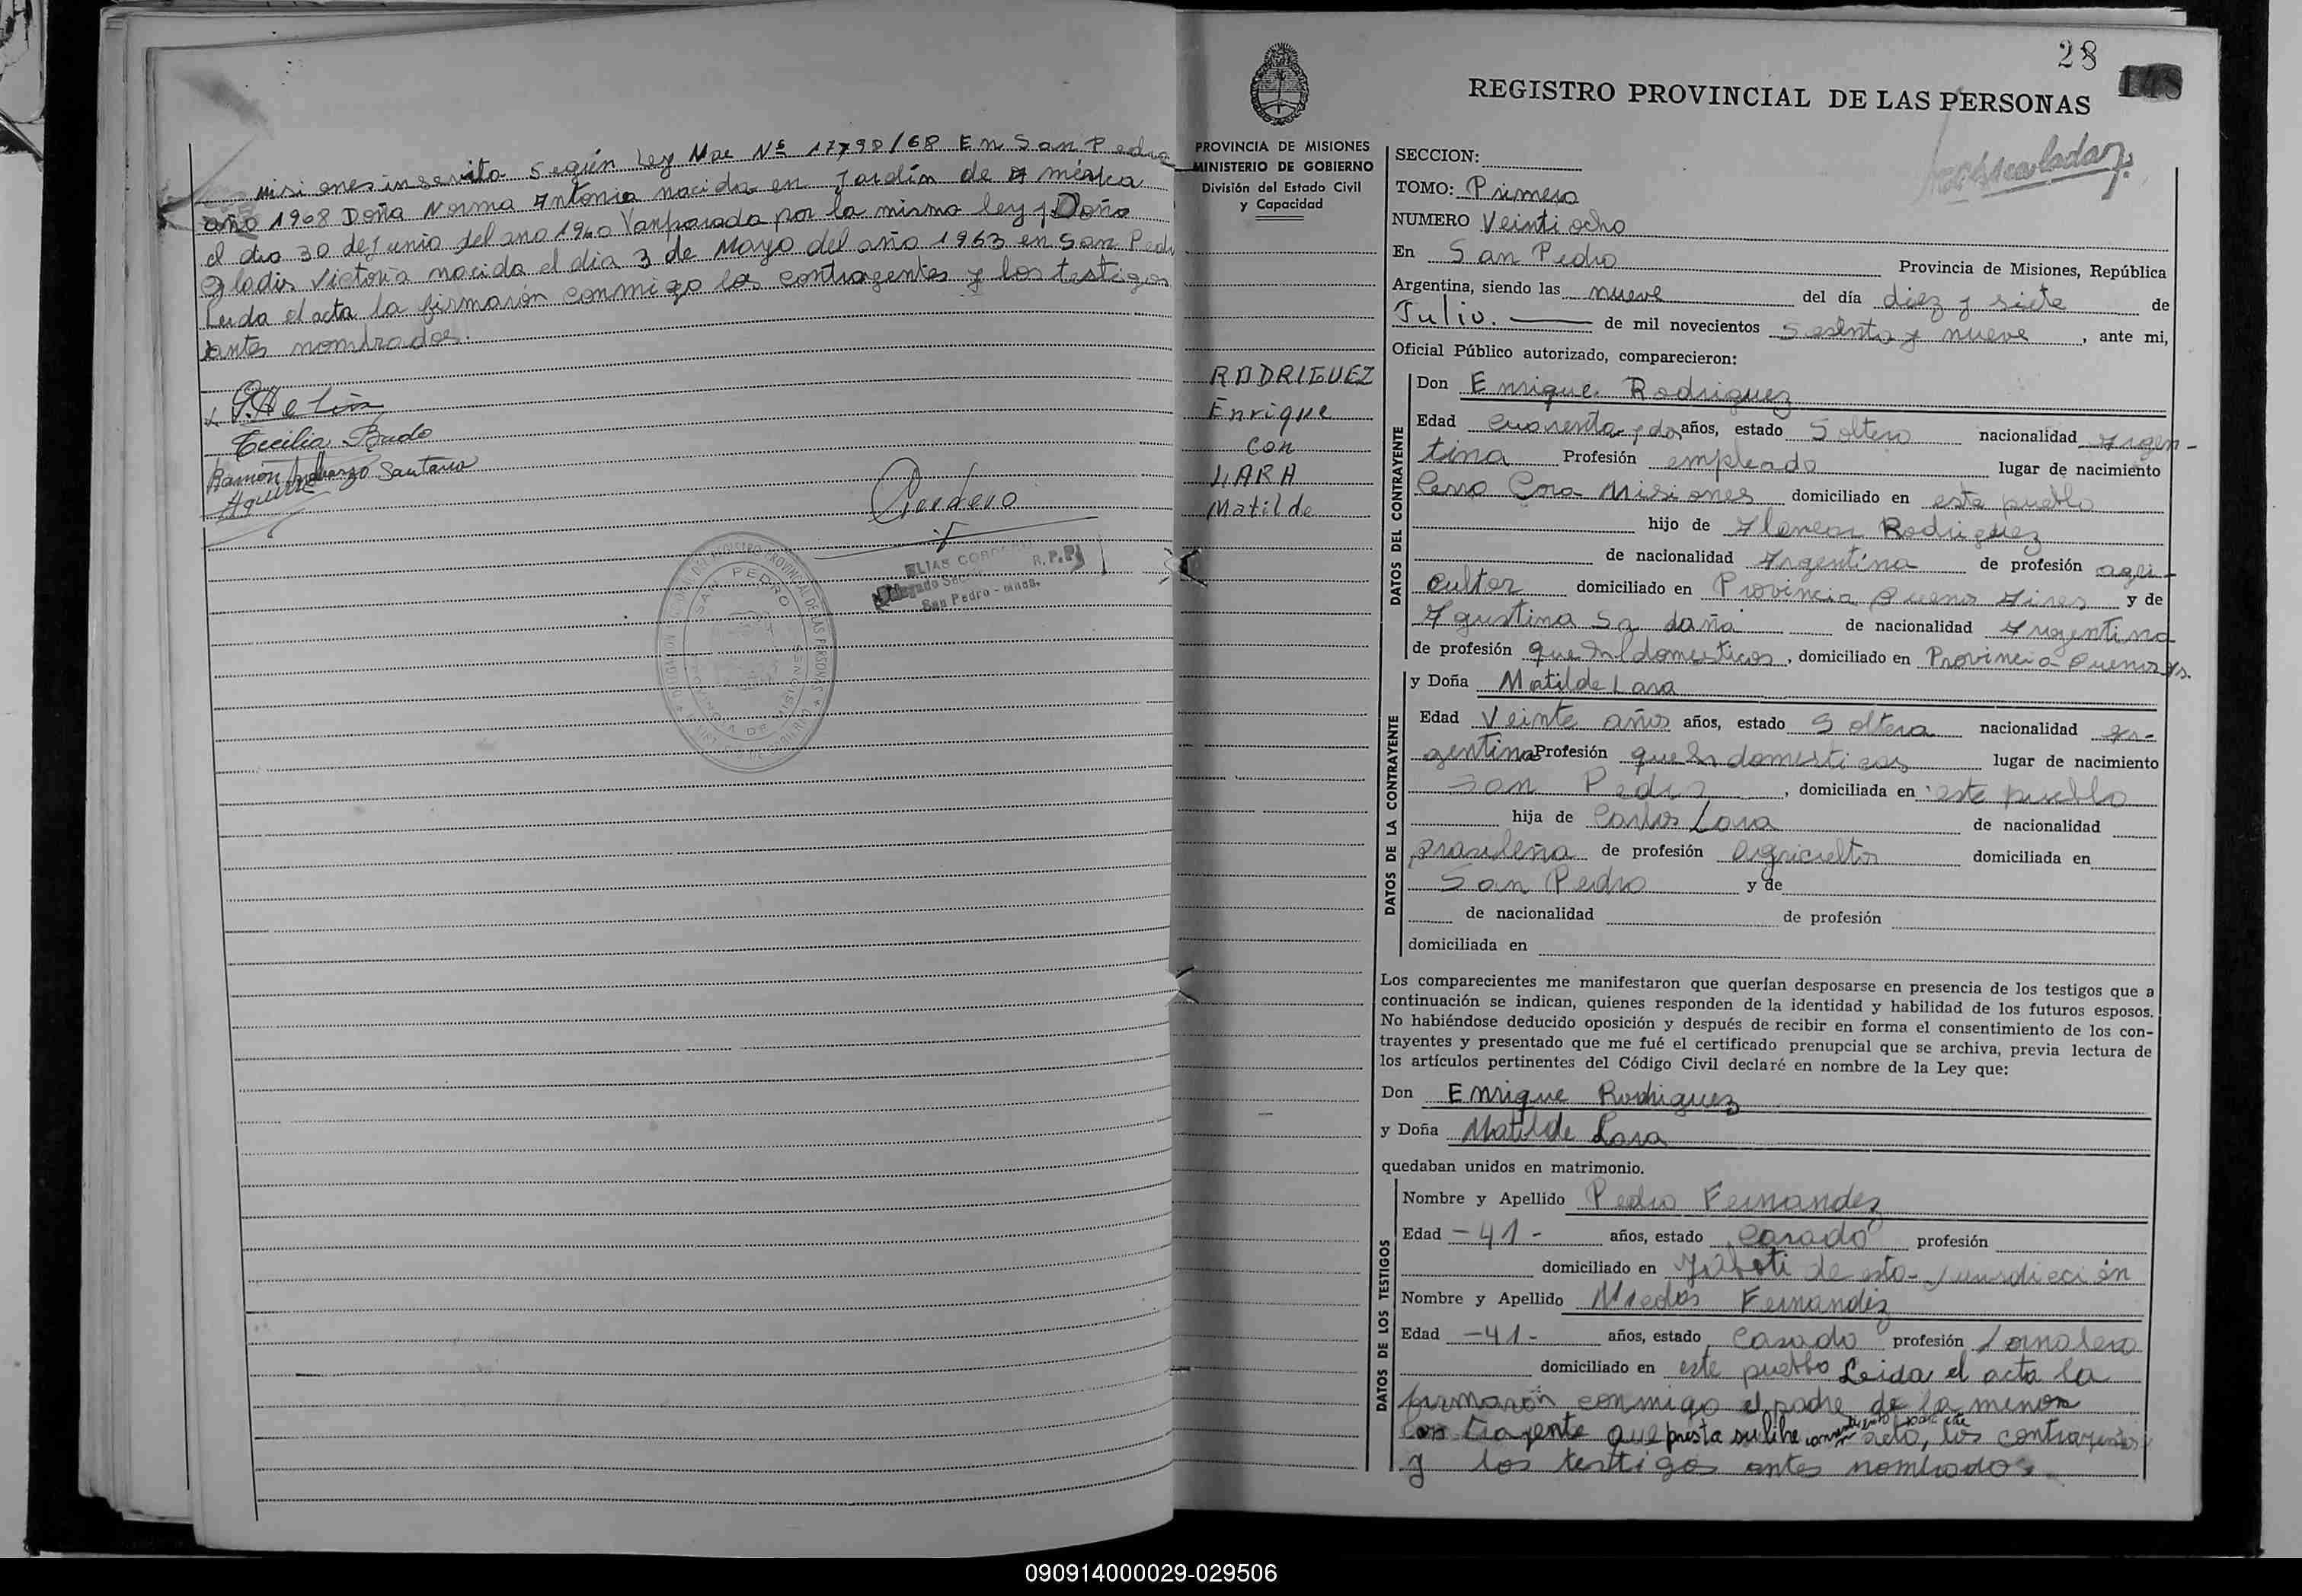 Misiones inscrita Según Ley Nº 17798/68 En San Pedro
año 1968 Doña Norma Antonia nacida en Jardín de América
el dia 30 de Junio del ano 1960 por la misma ley y Doña
Gladis Victoria nacida el dia 3 de Mayo del año 1963 en San Pedr
Leida el acta la firmarón conmigo los contragentes y los testigos
antes nombrados.
Cecilia
Ramón Santana
Cordero
ELIAS CORDERO
R.P.P.
San Pedro - Mnes.
SAN PEDRO
28
148
REGISTRO PROVINCIAL DE LAS PERSONAS
PROVINCIA DE MISIONES
MINISTERIO DE GOBIERNO
División del Estado Civil
y Capacidad
RODRIGUEZ
Enrique
con
LARA
Matilde
SECCION:
TOMO: Primero
NUMERO Veinti ocho
En San Pedro Provincia de Misiones, República
Argentina, siendo las nueve del día diez y siete de
Julio. de mil novecientos Sesenta y nueve, ante mi,
Oficial Público autorizado, comparecieron:
DATOS DEL CONTRAYENTE
Don Enrique Rodriguez
Edad Cuarenta y dos años, estado Soltero nacionalidad Argen-
tina Profesión empleado lugar de nacimiento
Cerro Cora Misiones domiciliado en este pueblo
hijo de Rodriguez
de nacionalidad Argentina de profesión agri-
cultor domiciliado en Provincia Buenos Aires y de
Agustina de nacionalidad Argentina
de profesión domesticos, domiciliado en Provincia Buenos As.
DATOS DE LA CONTRAYENTE
y Doña Matilde Lara
Edad Veinte años años, estado Soltera nacionalidad ar-
gentina Profesión domesticos lugar de nacimiento
San Pedro, domiciliada en este pueblo
hija de Carlos Lara de nacionalidad
brasileña de profesión Agricultor domiciliada en
San Pedro y de
de nacionalidad de profesión
domiciliada en
Los comparecientes me manifestaron que querían desposarse en presencia de los testigos que a
continuación se indican, quienes responden de la identidad y habilidad de los futuros esposos.
No habiéndose deducido oposición y después de recibir en forma el consentimiento de los con-
trayentes y presentado que me fué el certificado prenupcial que se archiva, previa lectura de
los artículos pertinentes del Código Civil declaré en nombre de la Ley que:
Don Enrique Rodriguez
y Doña Matilde Lara
quedaban unidos en matrimonio.
DATOS DE LOS TESTIGOS
Nombre y Apellido Pedro Fernandez
Edad -41- años, estado Casado profesión
domiciliado en de esta Jurisdicción
Nombre y Apellido Fernandez
Edad -41- años, estado Casado profesión Jornalero
domiciliado en este pueblo Leida el acta la
firmarón conmigo el padre de la menor
contragente que presta su libre acto, los contragentes
y los testigos antes nombrados
090914000029-029506